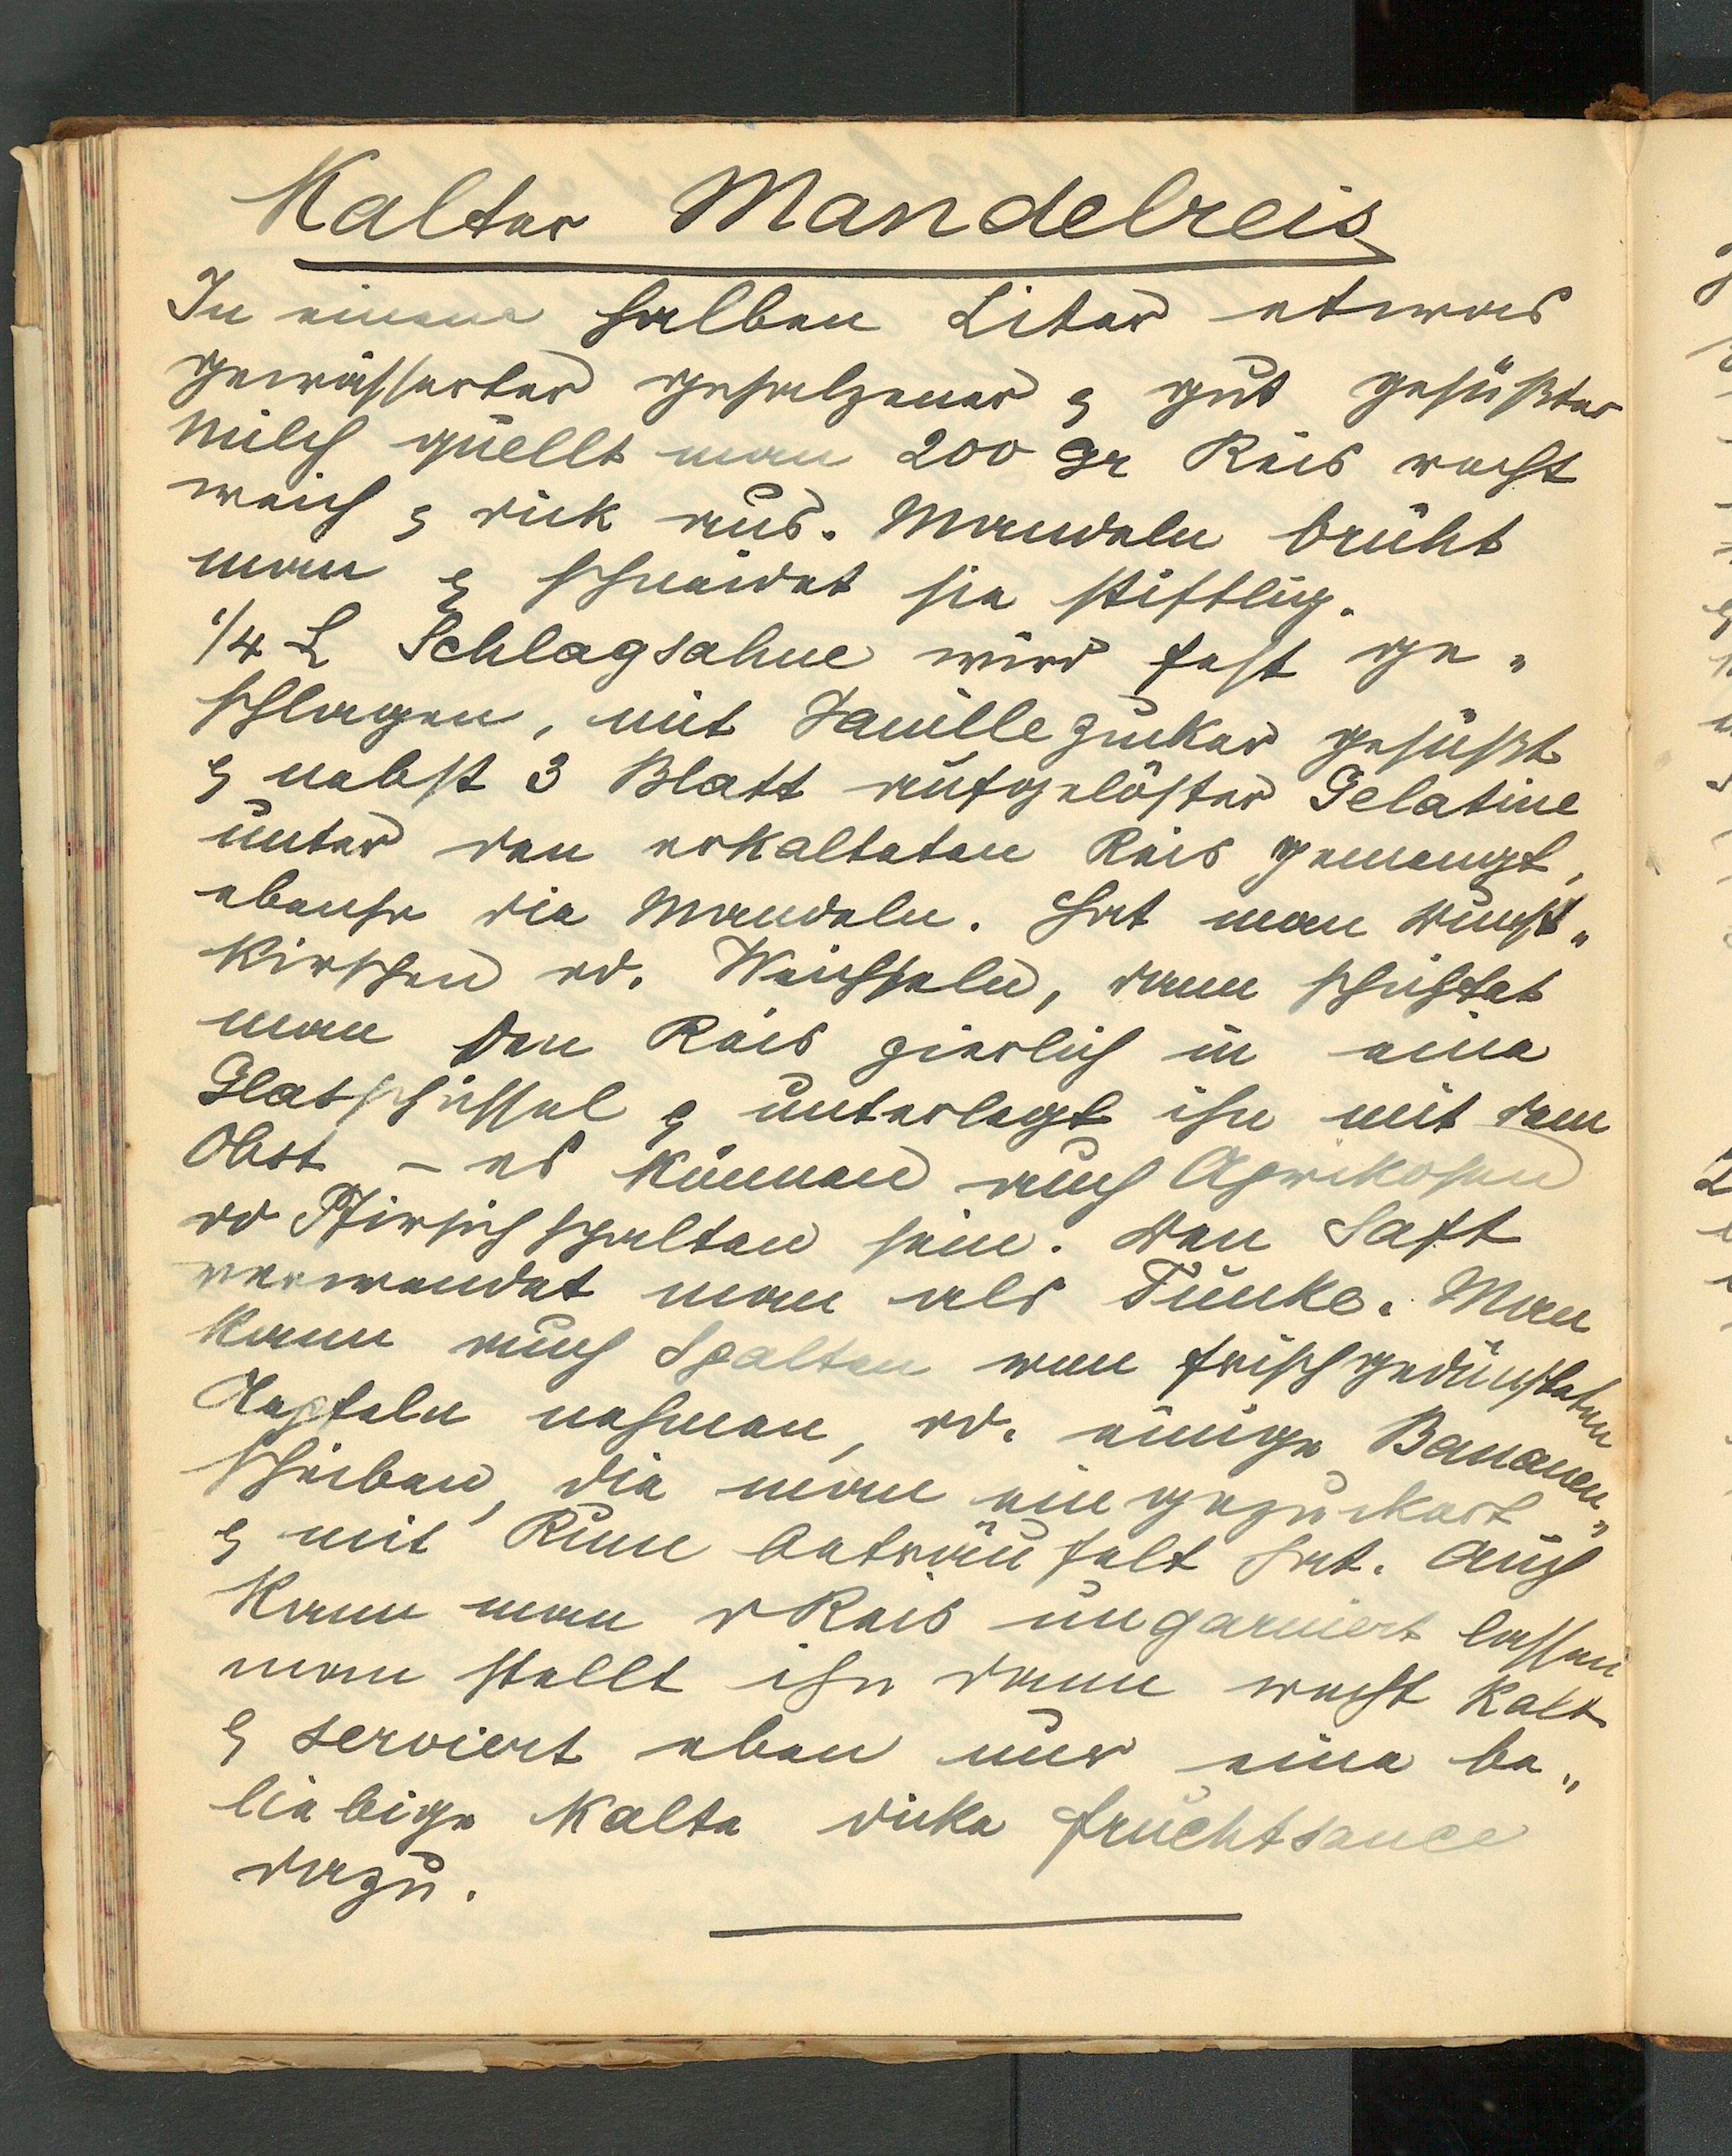 Kalter Mandelreis
In einem halben Liter etwas
gewässerter gesalzener & gut gesüßter
Milch quellt man 200 gr Reis recht
weich & dick aus. Mandeln brüht
man & schneidet sie stiftlig.
1/4 L Schlagsahne wird fest ge„
schlagen, mit Vanillezucker gesüßt
& nebst 3 Blatt aufgelöster Gelatine
unter den erkalteten Reis gemengt,
ebenso die Mandeln. Hat man Dunst„
kirschen od. Weichseln, dann schichtet
man den Reis zierlich in eine
Glasschüssel & unterlegt ihn mit dem
Obst – es können auch Aprikosen
od Pfirsichspalten sein. Den Saft
verwendet man als Tunke. Man
kann auch Spalten von frischgedünsteten
Aepfeln nehmen, od. einige Bananen„
scheiben, die man eingezuckert
& mit Rum beträufelt hat. Auch
kann man d Reis ungarniert lassen
man stellt ihn dann recht kalt
& serviert eben nur eine be„
liebige kalte dicke Fruchtsauce
dazu.